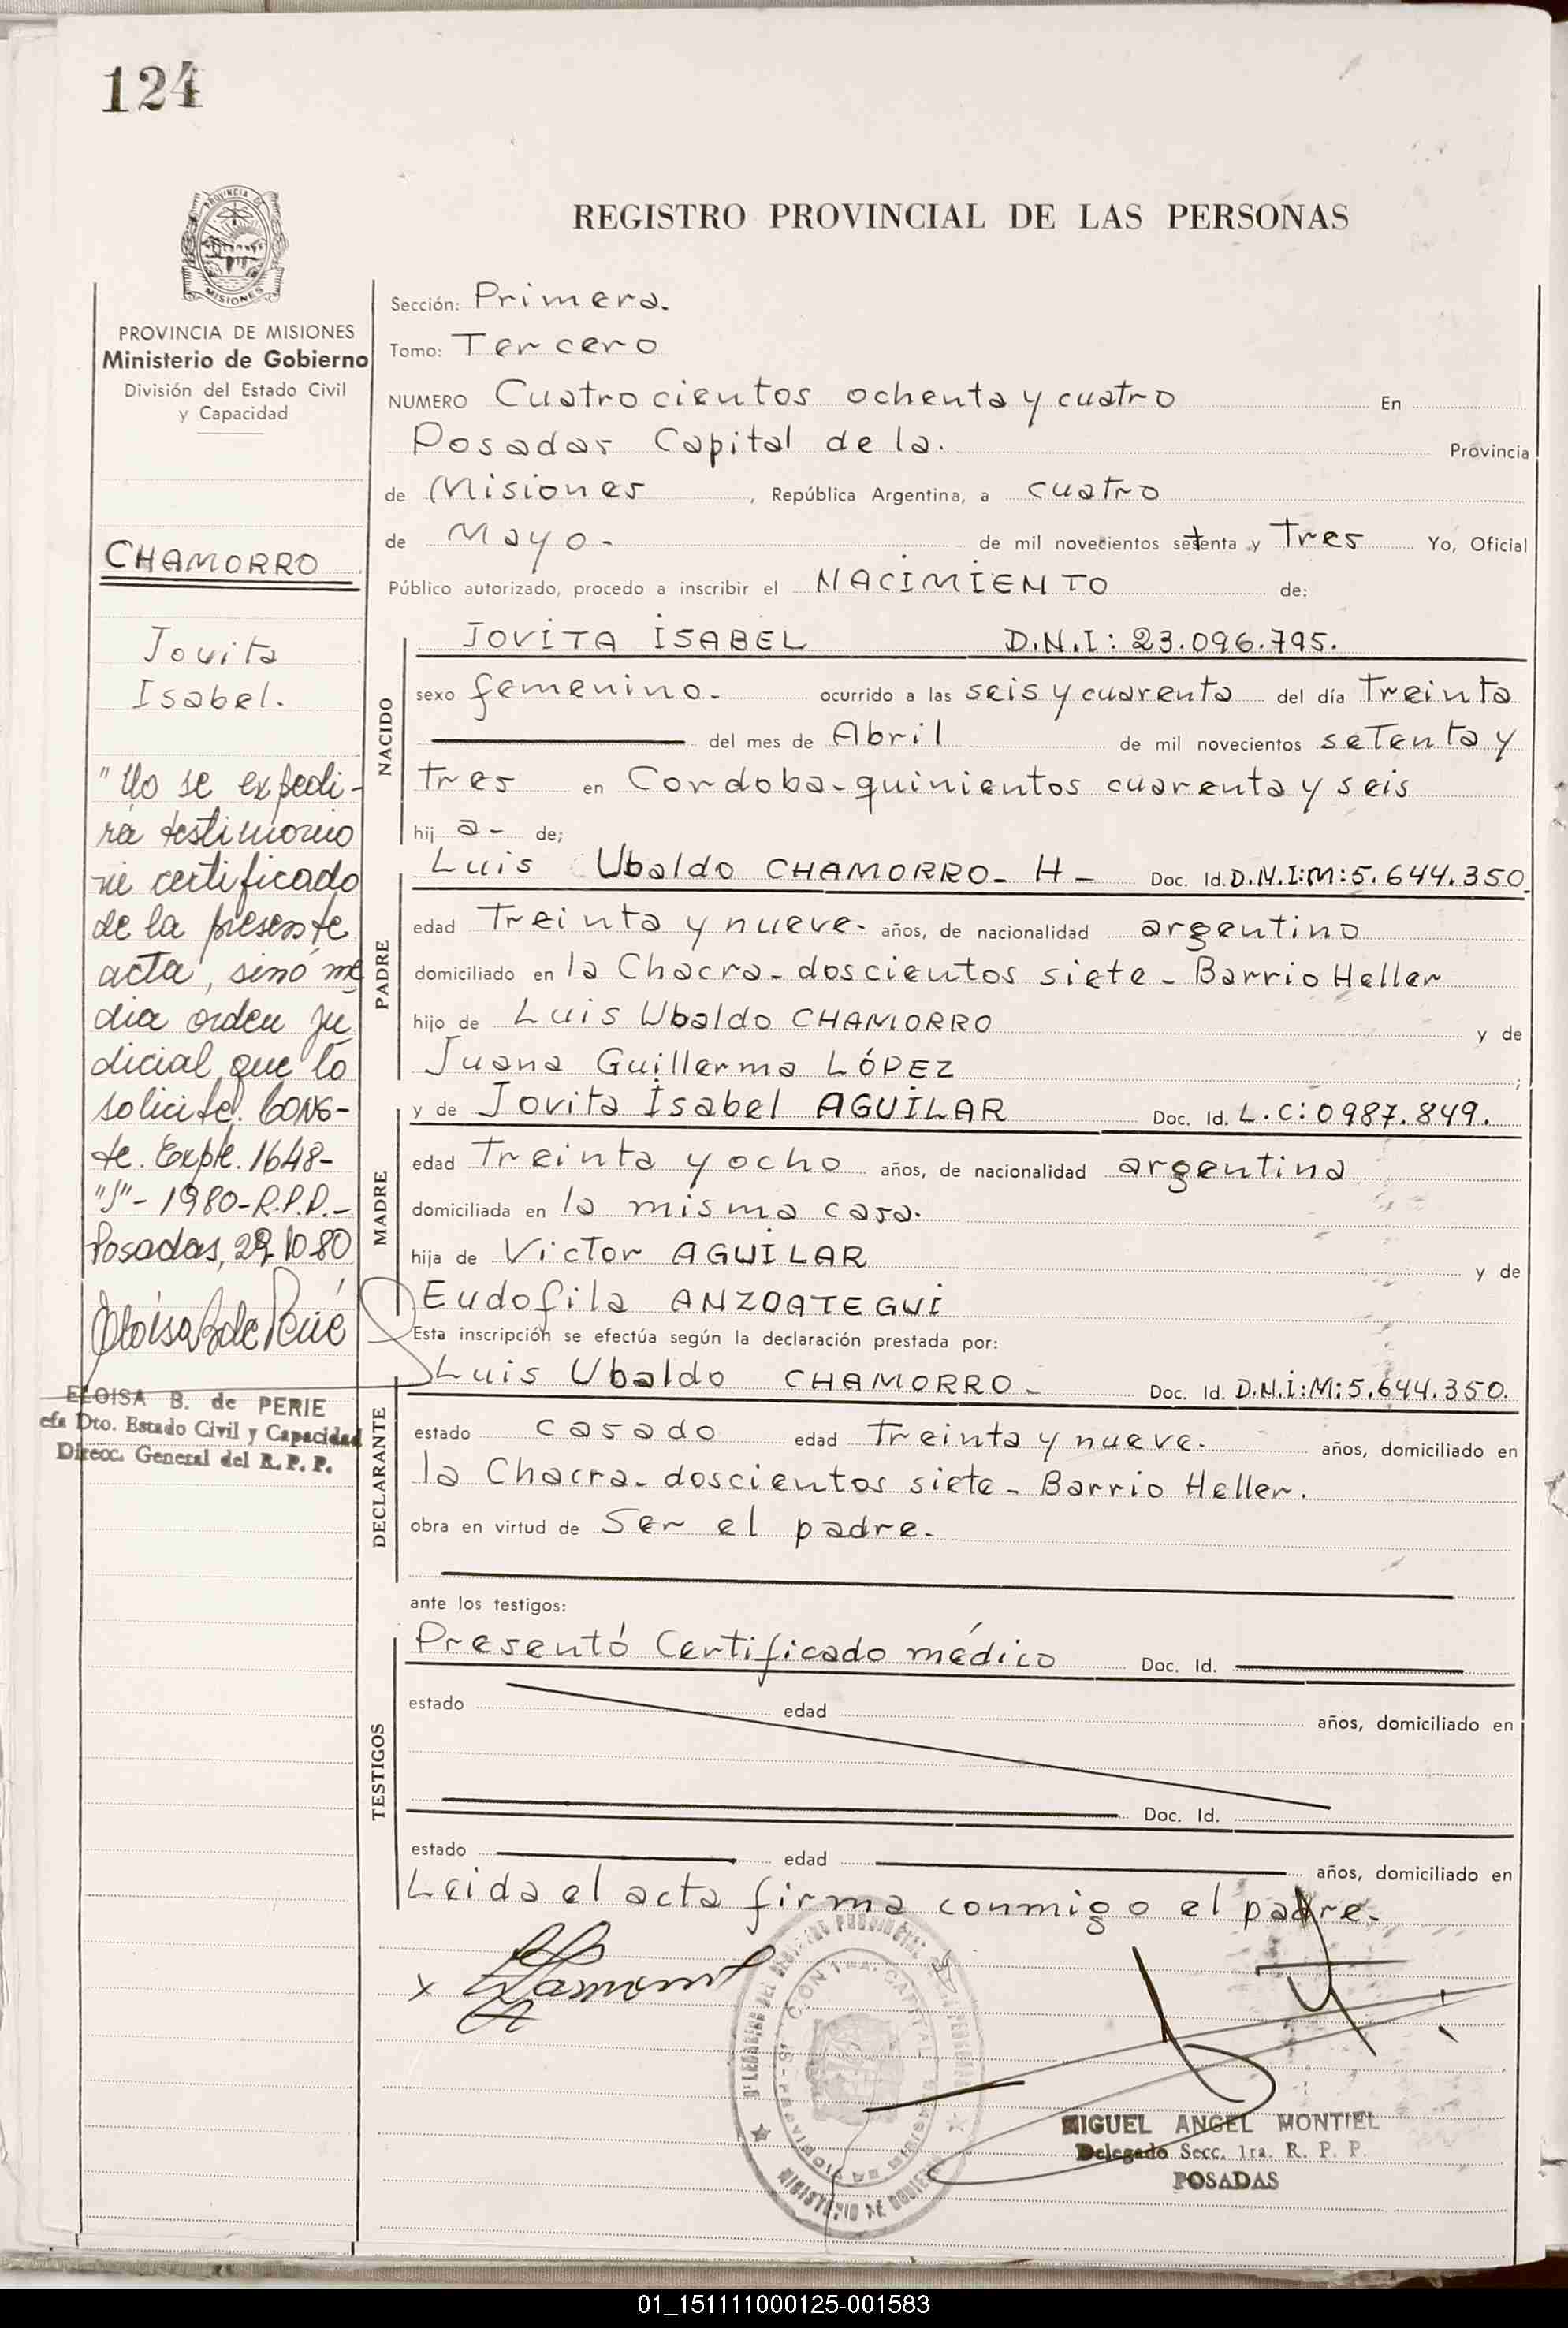 124
PROVINCIA DE MISIONES
Ministerio de Gobierno
División del Estado Civil
y Capacidad
CHAMORRO
Jovita
Isabel.
"No se expedi-
rá testimonio
ni certificado
de la presente
acta, sinó me
dia orden ju
dicial que lo
solicite. CONS-
te. Expte. 1648-
"J"- 1980-R.P.P.-
Posadas, 29.10.80
ELOISA B. de PERIE
efa Dto. Estado Civil y Capacidad
Direcc. General del R. P. P.
REGISTRO PROVINCIAL DE LAS PERSONAS
Sección: Primera.
Tomo: Tercero
NUMERO Cuatrocientos ochenta y cuatro En
Posadas Capital de la. Provincia
de Misiones, República Argentina, a cuatro
de Mayo.- de mil novecientos setenta y Tres Yo, Oficial
Público autorizado, procedo a inscribir el NACIMIENTO de:
NACIDO
JOVITA ISABEL D.N.I: 23.096.795.
sexo femenino.- ocurrido a las seis y cuarenta del día Treinta
del mes de Abril de mil novecientos setenta y
tres en Cordoba-quinientos cuarenta y seis
hij a- de;
PADRE
Luis Ubaldo CHAMORRO- H- Doc. Id. D.N.I:M:5.644.350
edad Treinta y nueve- años, de nacionalidad argentino
domiciliado en la Chacra-doscientos siete- Barrio Heller
hijo de Luis Ubaldo CHAMORRO y de
Juana Guillerma LÓPEZ ;
MADRE
y de Jovita Isabel AGUILAR Doc. Id. L.C:0987.849.
edad Treinta y ocho años, de nacionalidad argentina
domiciliada en la misma casa.
hija de Victor AGUILAR y de
Eudofila ANZOATEGUI
Esta inscripción se efectúa según la declaración prestada por:
DECLARANTE
Luis Ubaldo CHAMORRO- Doc. Id. D.N.I:M:5.644.350.
estado casado edad Treinta y nueve. años, domiciliado en
la Chacra-doscientos siete- Barrio Heller.
obra en virtud de Ser el padre.
ante los testigos:
TESTIGOS
Presentó Certificado médico Doc. Id.
estado edad años, domiciliado en
Doc. Id.
estado edad años, domiciliado en
Leida el acta firma conmigo el padre.
x
MIGUEL ANGEL MONTIEL
Delegado Secc. 1ra. R. P. P.
POSADAS
01_151111000125-001583